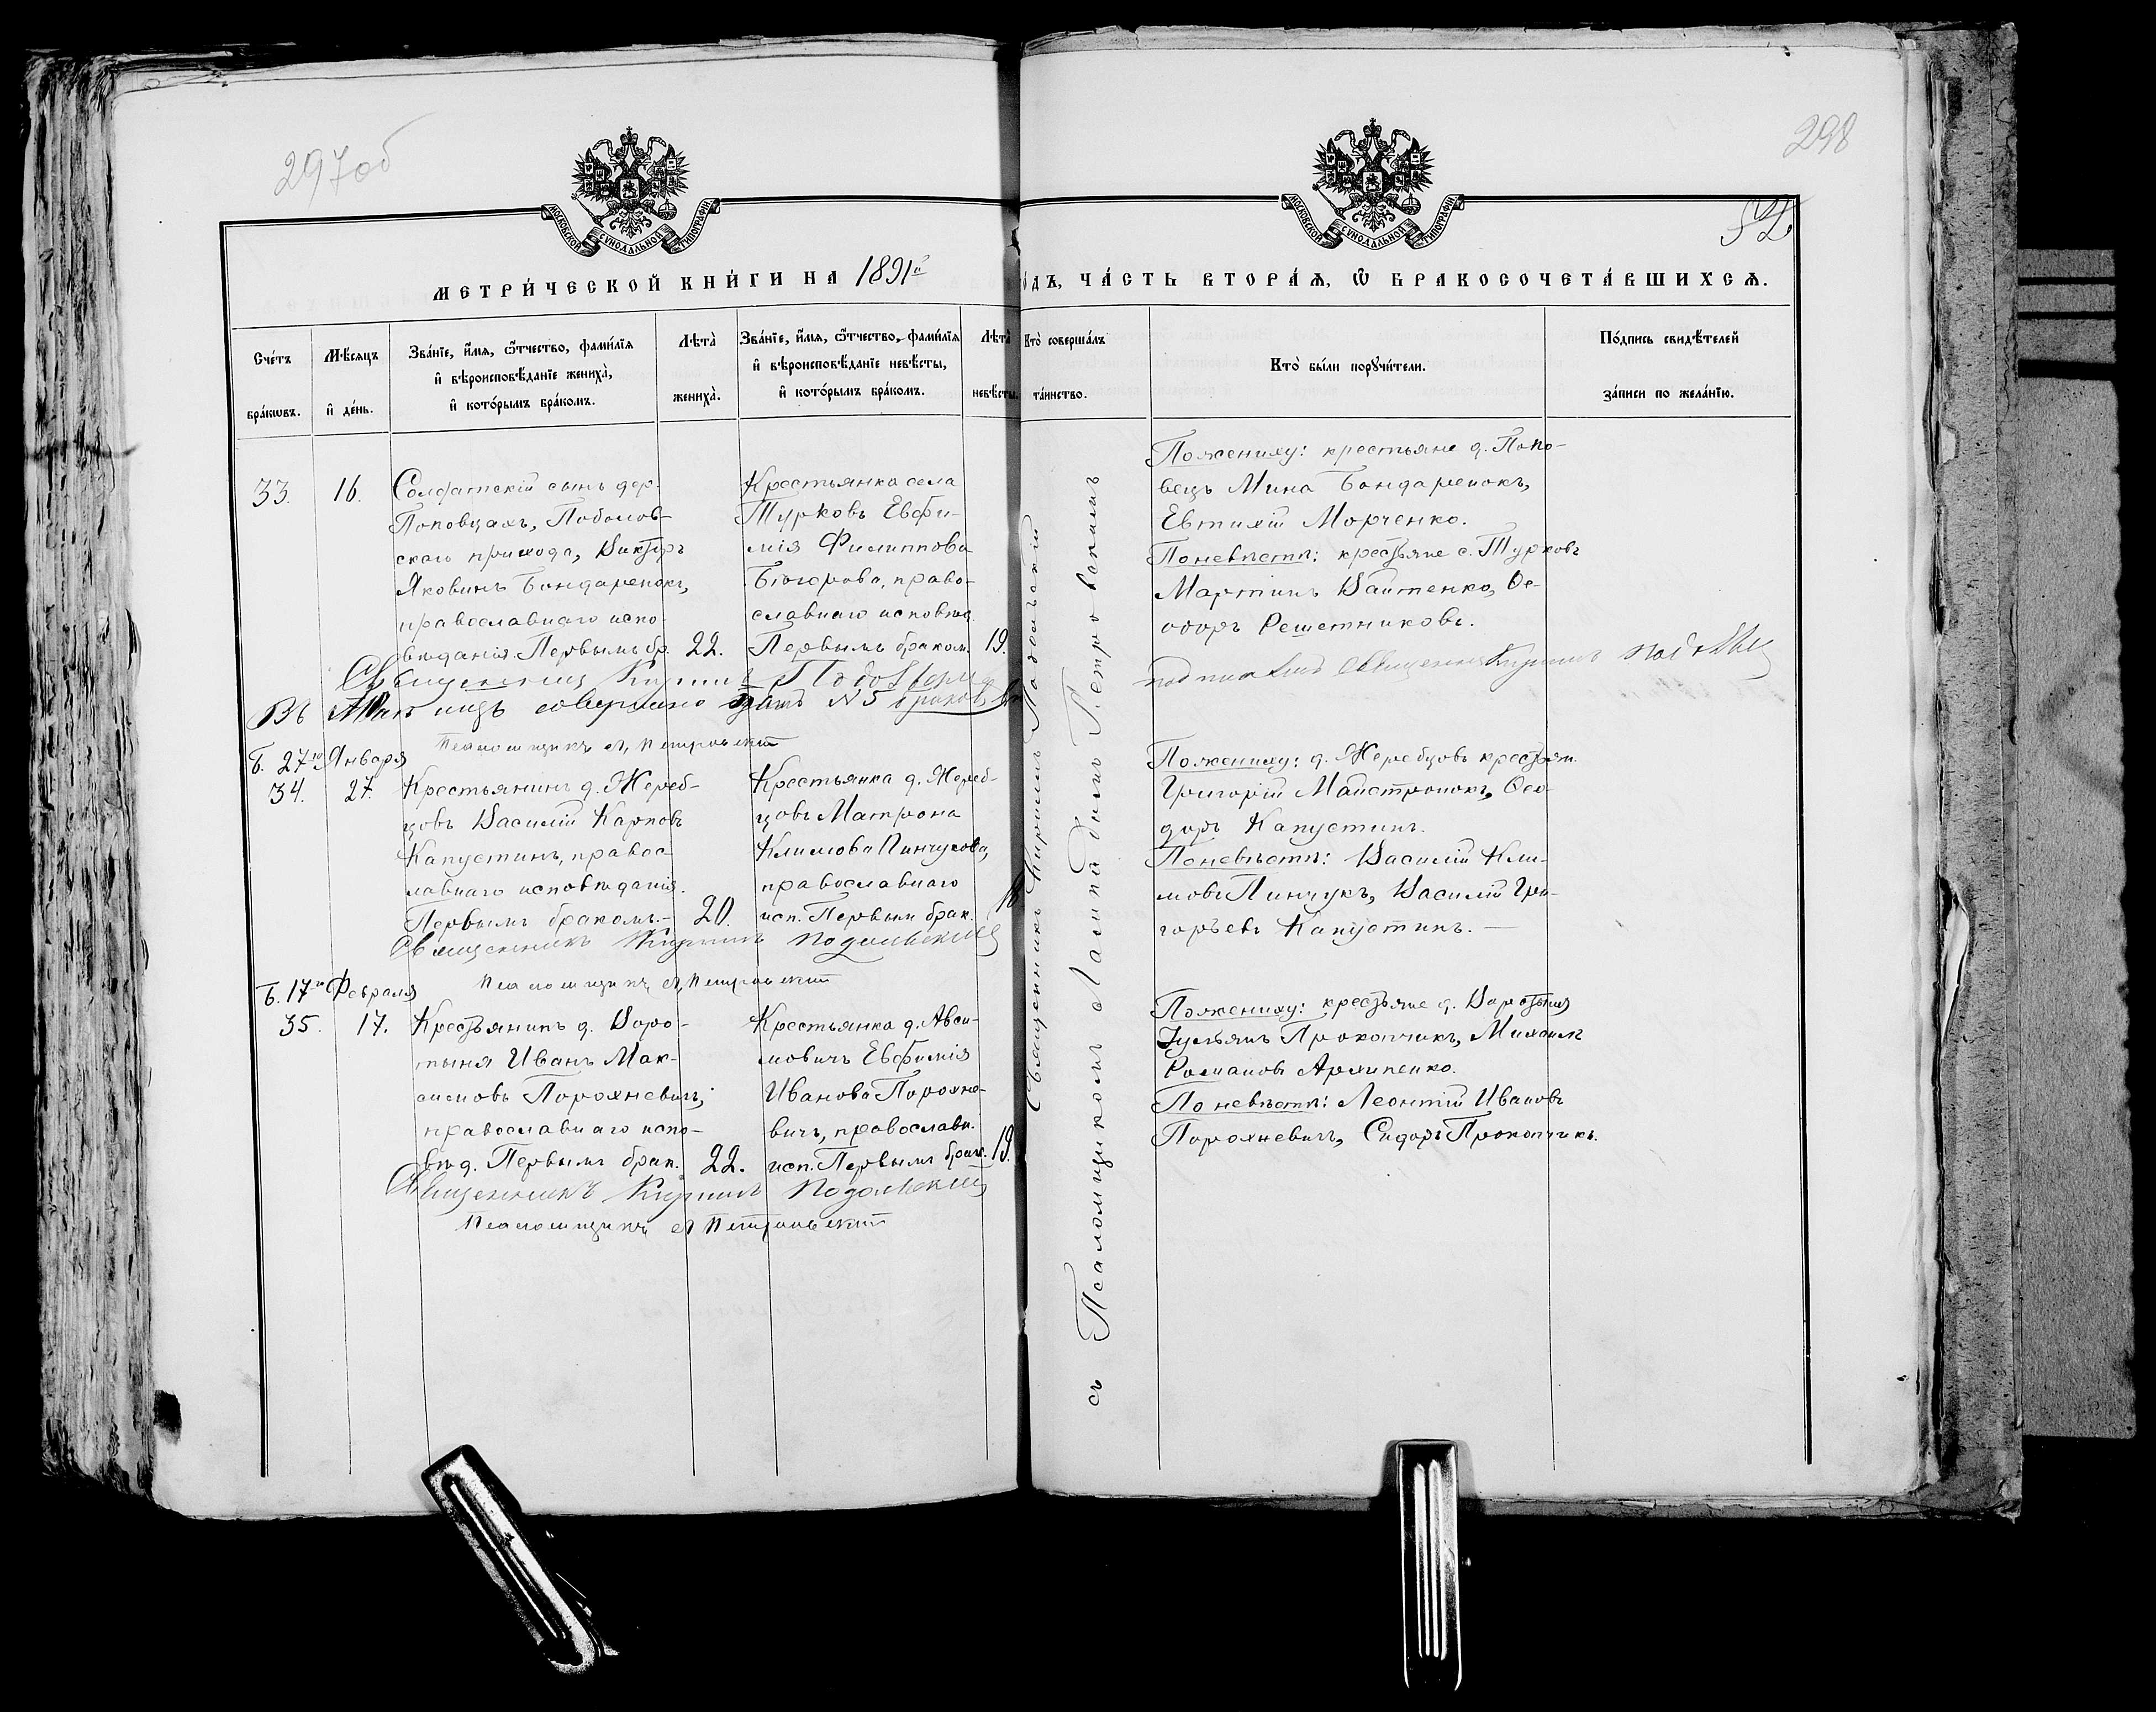 297об
298
52.
МОСКОВСКОЙ СѴНОДАЛЬНОЙ ТИПОГРАФІИ
МОСКОВСКОЙ СѴНОДАЛЬНОЙ ТИПОГРАФІИ
МЕТРИ́ЧЕСКОЙ КНИ́ГИ НА 1891й
О́ДЪ, ЧА́СТЬ ВТОРА́Ѧ, Ѡ҆ БРАКОСОЧЕТА́ВШИХСѦ.
Сче́тъ бра́кѡвъ.
Мѣ́сѧцъ и҆ де́нь.
Зва́нїе, и҆́мѧ, ѻ҆́тчество, фами́лїѧ
и҆ вѣроисповѣ́данїе жениха̀,
и҆ кото́рымъ бра́комъ.
Лѣ́та жениха̀.
Зва́нїе, и҆́мѧ, ѻ҆́тчество, фами́лїѧ
и҆ вѣроисповѣ́данїе невѣ́сты,
и҆ кото́рымъ бра́комъ.
Лѣ́та невѣ́сты.
Кто̀ соверша́лъ та́инство.
Кто̀ бы́ли порꙋчи́тели.
По́дпись свидѣ́телей
за́писи по жела́нїю.
33.
16.
Солдатскій сынъ дер.
Поповцахъ, Поболов-
скаго прихода, Викторъ
Яковинъ Бондаренокъ,
православнаго испо-
вѣданія. Первымъ бр.
22.
Крестьянка села
Турковъ Евфи-
мія Филиппова
Бюгорова, право-
славнаго исповѣд.
Первымъ браком.
19.
По жениху: крестьяне д. Попо-
вецъ Мина Бондаренокъ,
Евтихій Морченко.
По невѣстѣ: крестьяне с. Турковъ
Мартинъ Вайтенко, Ѳе-
одоръ Решетниковъ.
Священникъ Кирилъ Подольскій
Священникъ Кирилъ
Въ совершено N 5 браковъ
Псаломщикъ Л. Петровскій
Б. 27го Января
34.
27.
Крестьянинъ д. Жереб-
цовъ Василій Карповъ
Капустинъ, правос-
лавнаго исповѣданія.
Первымъ бракомъ.-
20.
Крестьянка д. Жереб-
цовъ Матрона
Климова Пинчукова,
православнаго
исп. Первым брак.
18
По жениху: д. Жеребцовъ крестьян.
Григорій Майстронокъ, Ѳео-
доръ Капустинъ.
По невѣстѣ: Василій Кли-
мовъ Пинчукъ, Василій Гри-
горьевъ Капустинъ. —
Священникъ Кирилъ Подольскій
Псаломщикъ Л. Петровскій
Б. 17го Февраля
35.
17.
Крестьянинъ д. Воро-
тыня Иванъ Мак-
симовъ Порохневичъ,
православнаго испо-
вѣд. Первымъ брак.
22.
Крестьянка д. Авси-
мовичъ Евфимія
Иванова Порохне-
вичъ, православн.
исп. Первымъ брак.
19.
По жениху: крестьяне д. Воротыня
Прокопчикъ, Михаилъ
Романовъ Архипенко.
По невѣстѣ: Леонтій Ивановъ
Порохневичъ, Сидоръ Прокопчикъ.
Священникъ Кирилъ Подольскій
Псаломщикъ Л Петровскій
Священникъ Кирилъ Подольскій
съ Псаломщикомъ Лампадіемъ Петровскимъ